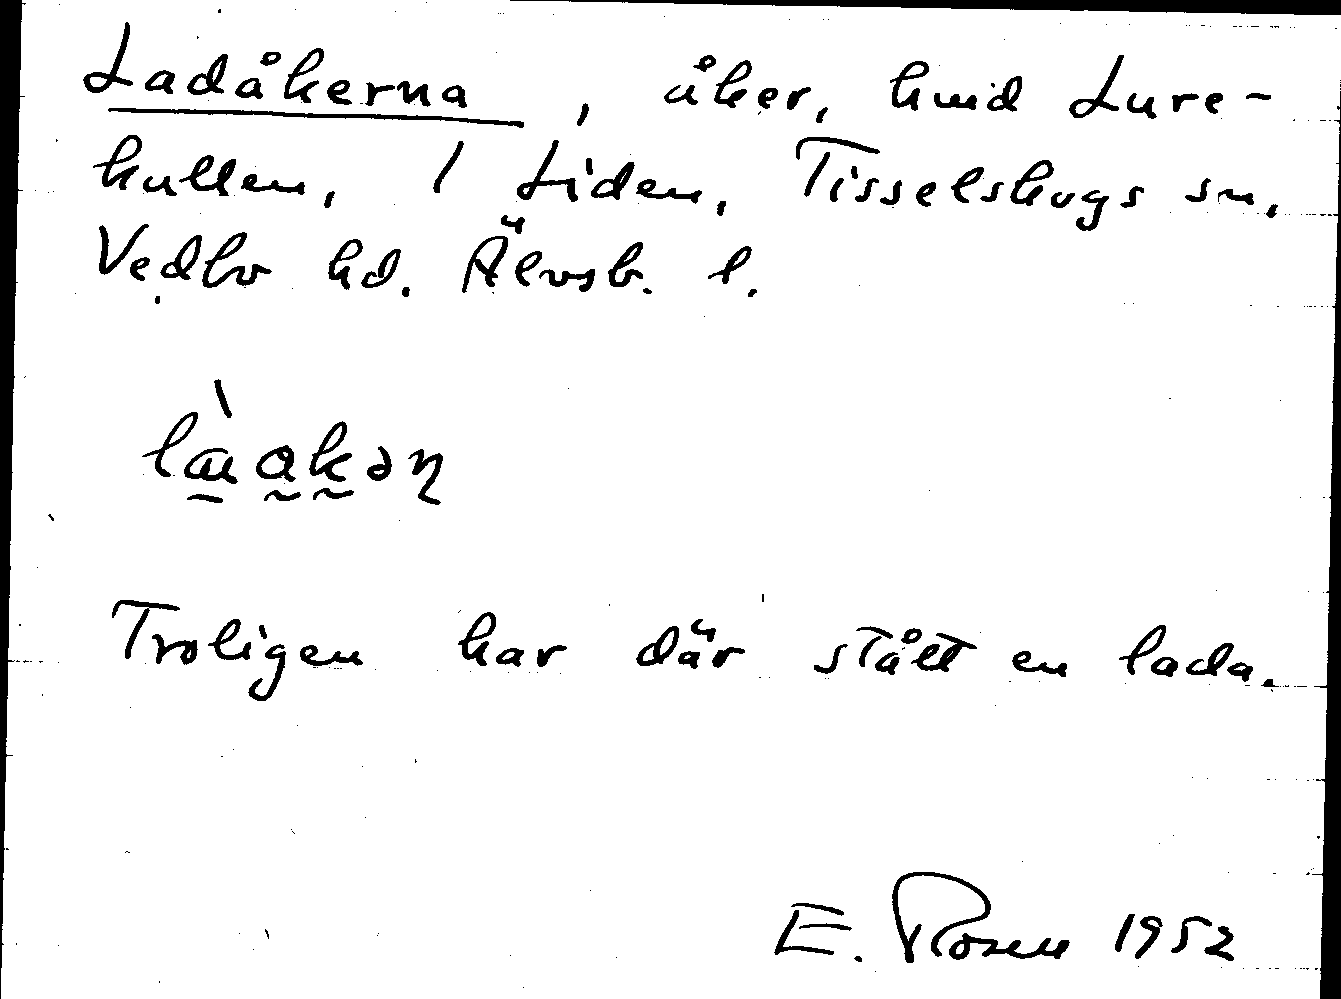 Ladåkerna, åker, hmd Lure-
kullen, 1 Liden, Tisselskogs sn,
Vedbo hd. Älvsb. l.
Troligen har där stått en lada.
E. Rosen 1952